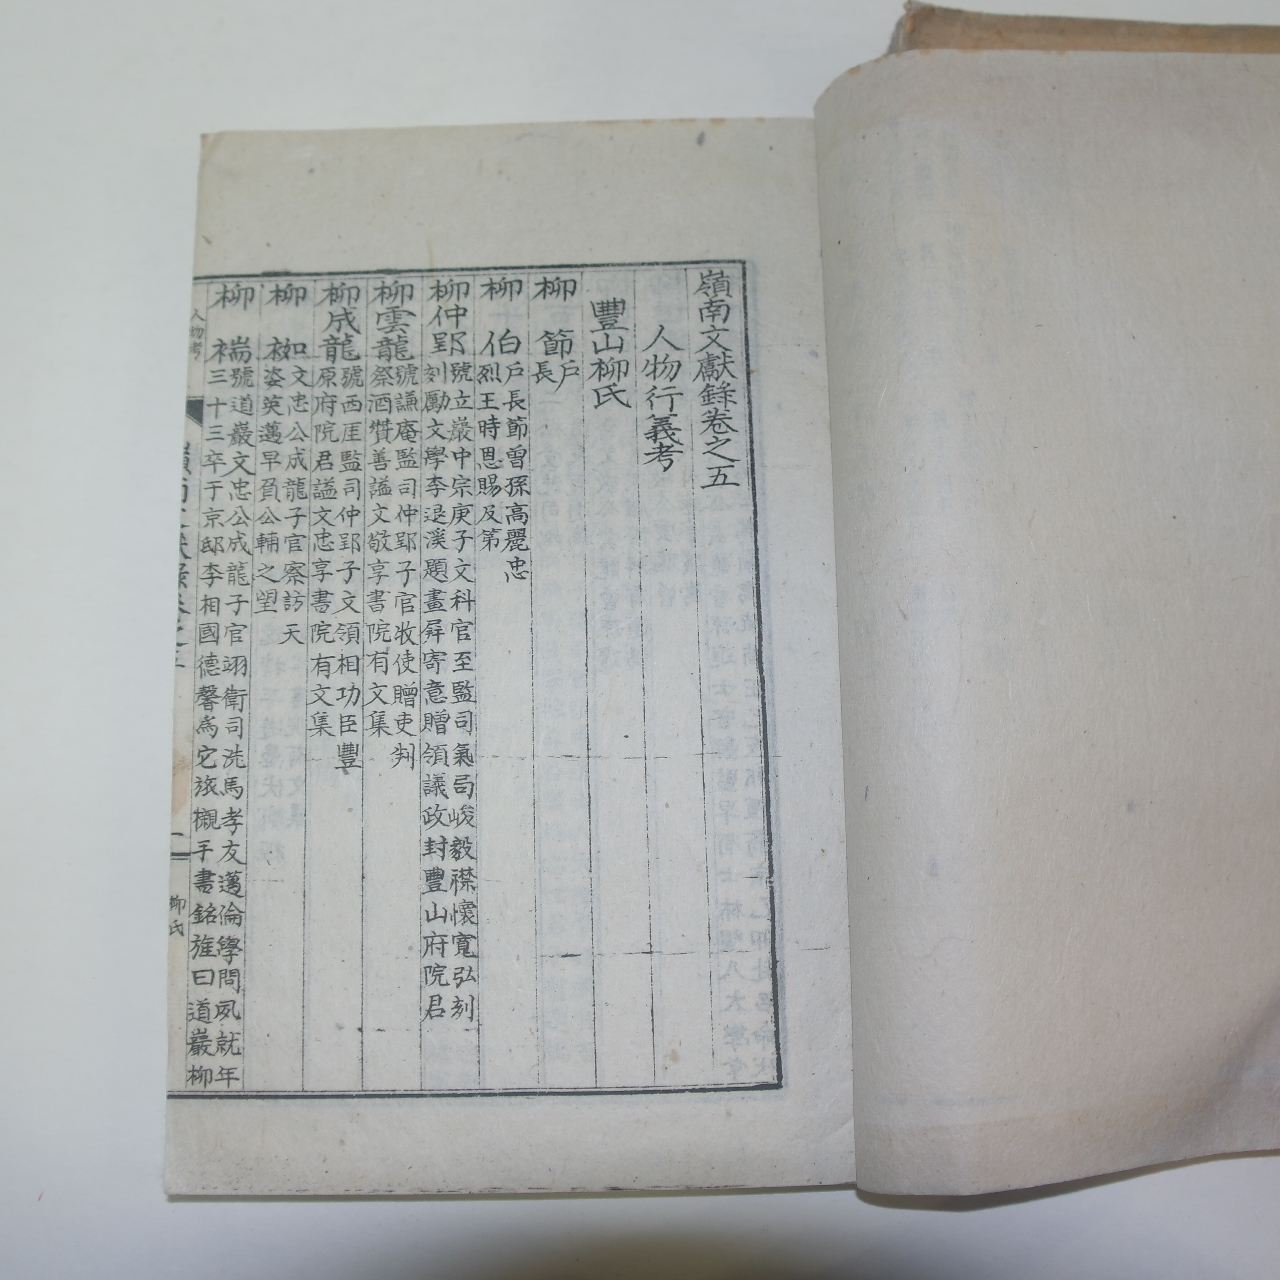 嶺南文獻錄卷之五
人物行義考
豐山柳氏
柳節戶長
柳伯戶長節曾孫高麗忠
烈王時恩賜及第
柳仲郢號立巖中宗庚子文科官至監司氣局峻毅襟懷寬弘刻
刻勵文學李退溪題畫屛寄意贈領議政封豐山府院君
柳雲龍號謙庵監司仲郢子官牧使贈吏判
祭酒贊善謚文敬享書院有文集
柳成龍號西厓監司仲郢子文領相功臣豐
原府院君謚文忠享書院有文集
柳袽文忠公成龍子官察訪天
姿英邁早負公輔之望
柳褍號道巖文忠公成龍子官翊衛司洗馬孝友邁倫學問夙就年
三十三卒于京邸李相國德馨爲它旅櫬手書銘旌曰道巖柳
人物考
柳氏